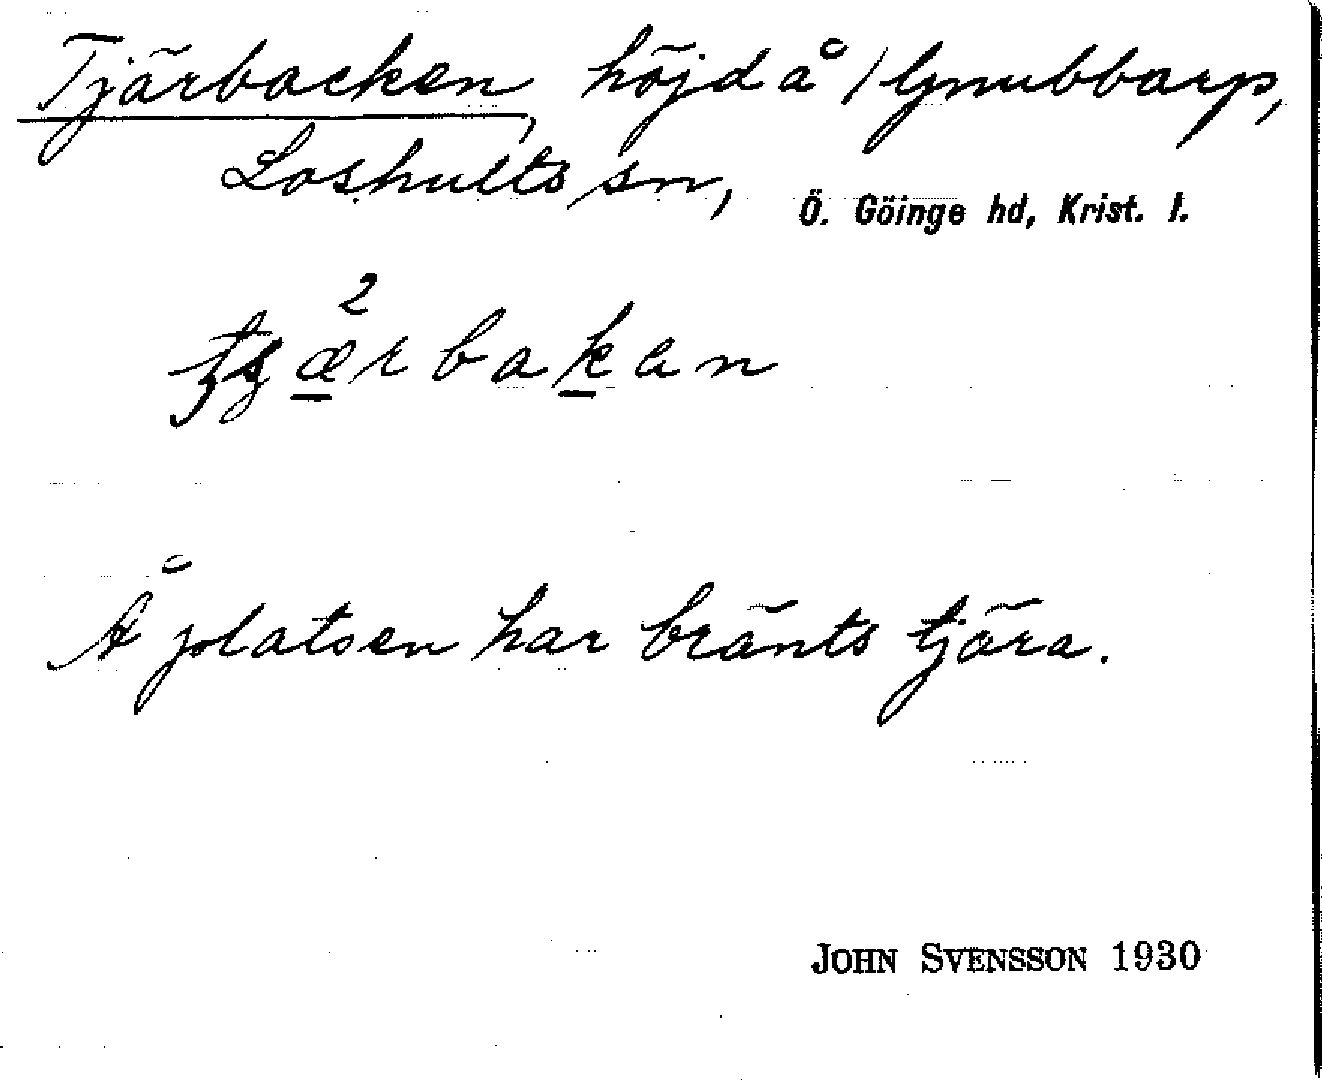 Tjärbacken, höjd å Gnubbarp,
Loshults sn, Ö. Göinge hd, Krist. l.
2
ærbakan
Å platsen har bränts tjära.
JOHN SVENSSON 1930